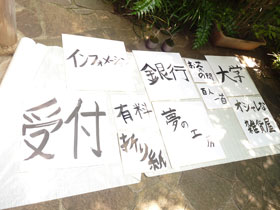 インフォメーション
銀行
お茶の間
大学
受付
有料
折り紙
夢の工
百人一首
オシャレな
雑貨屋